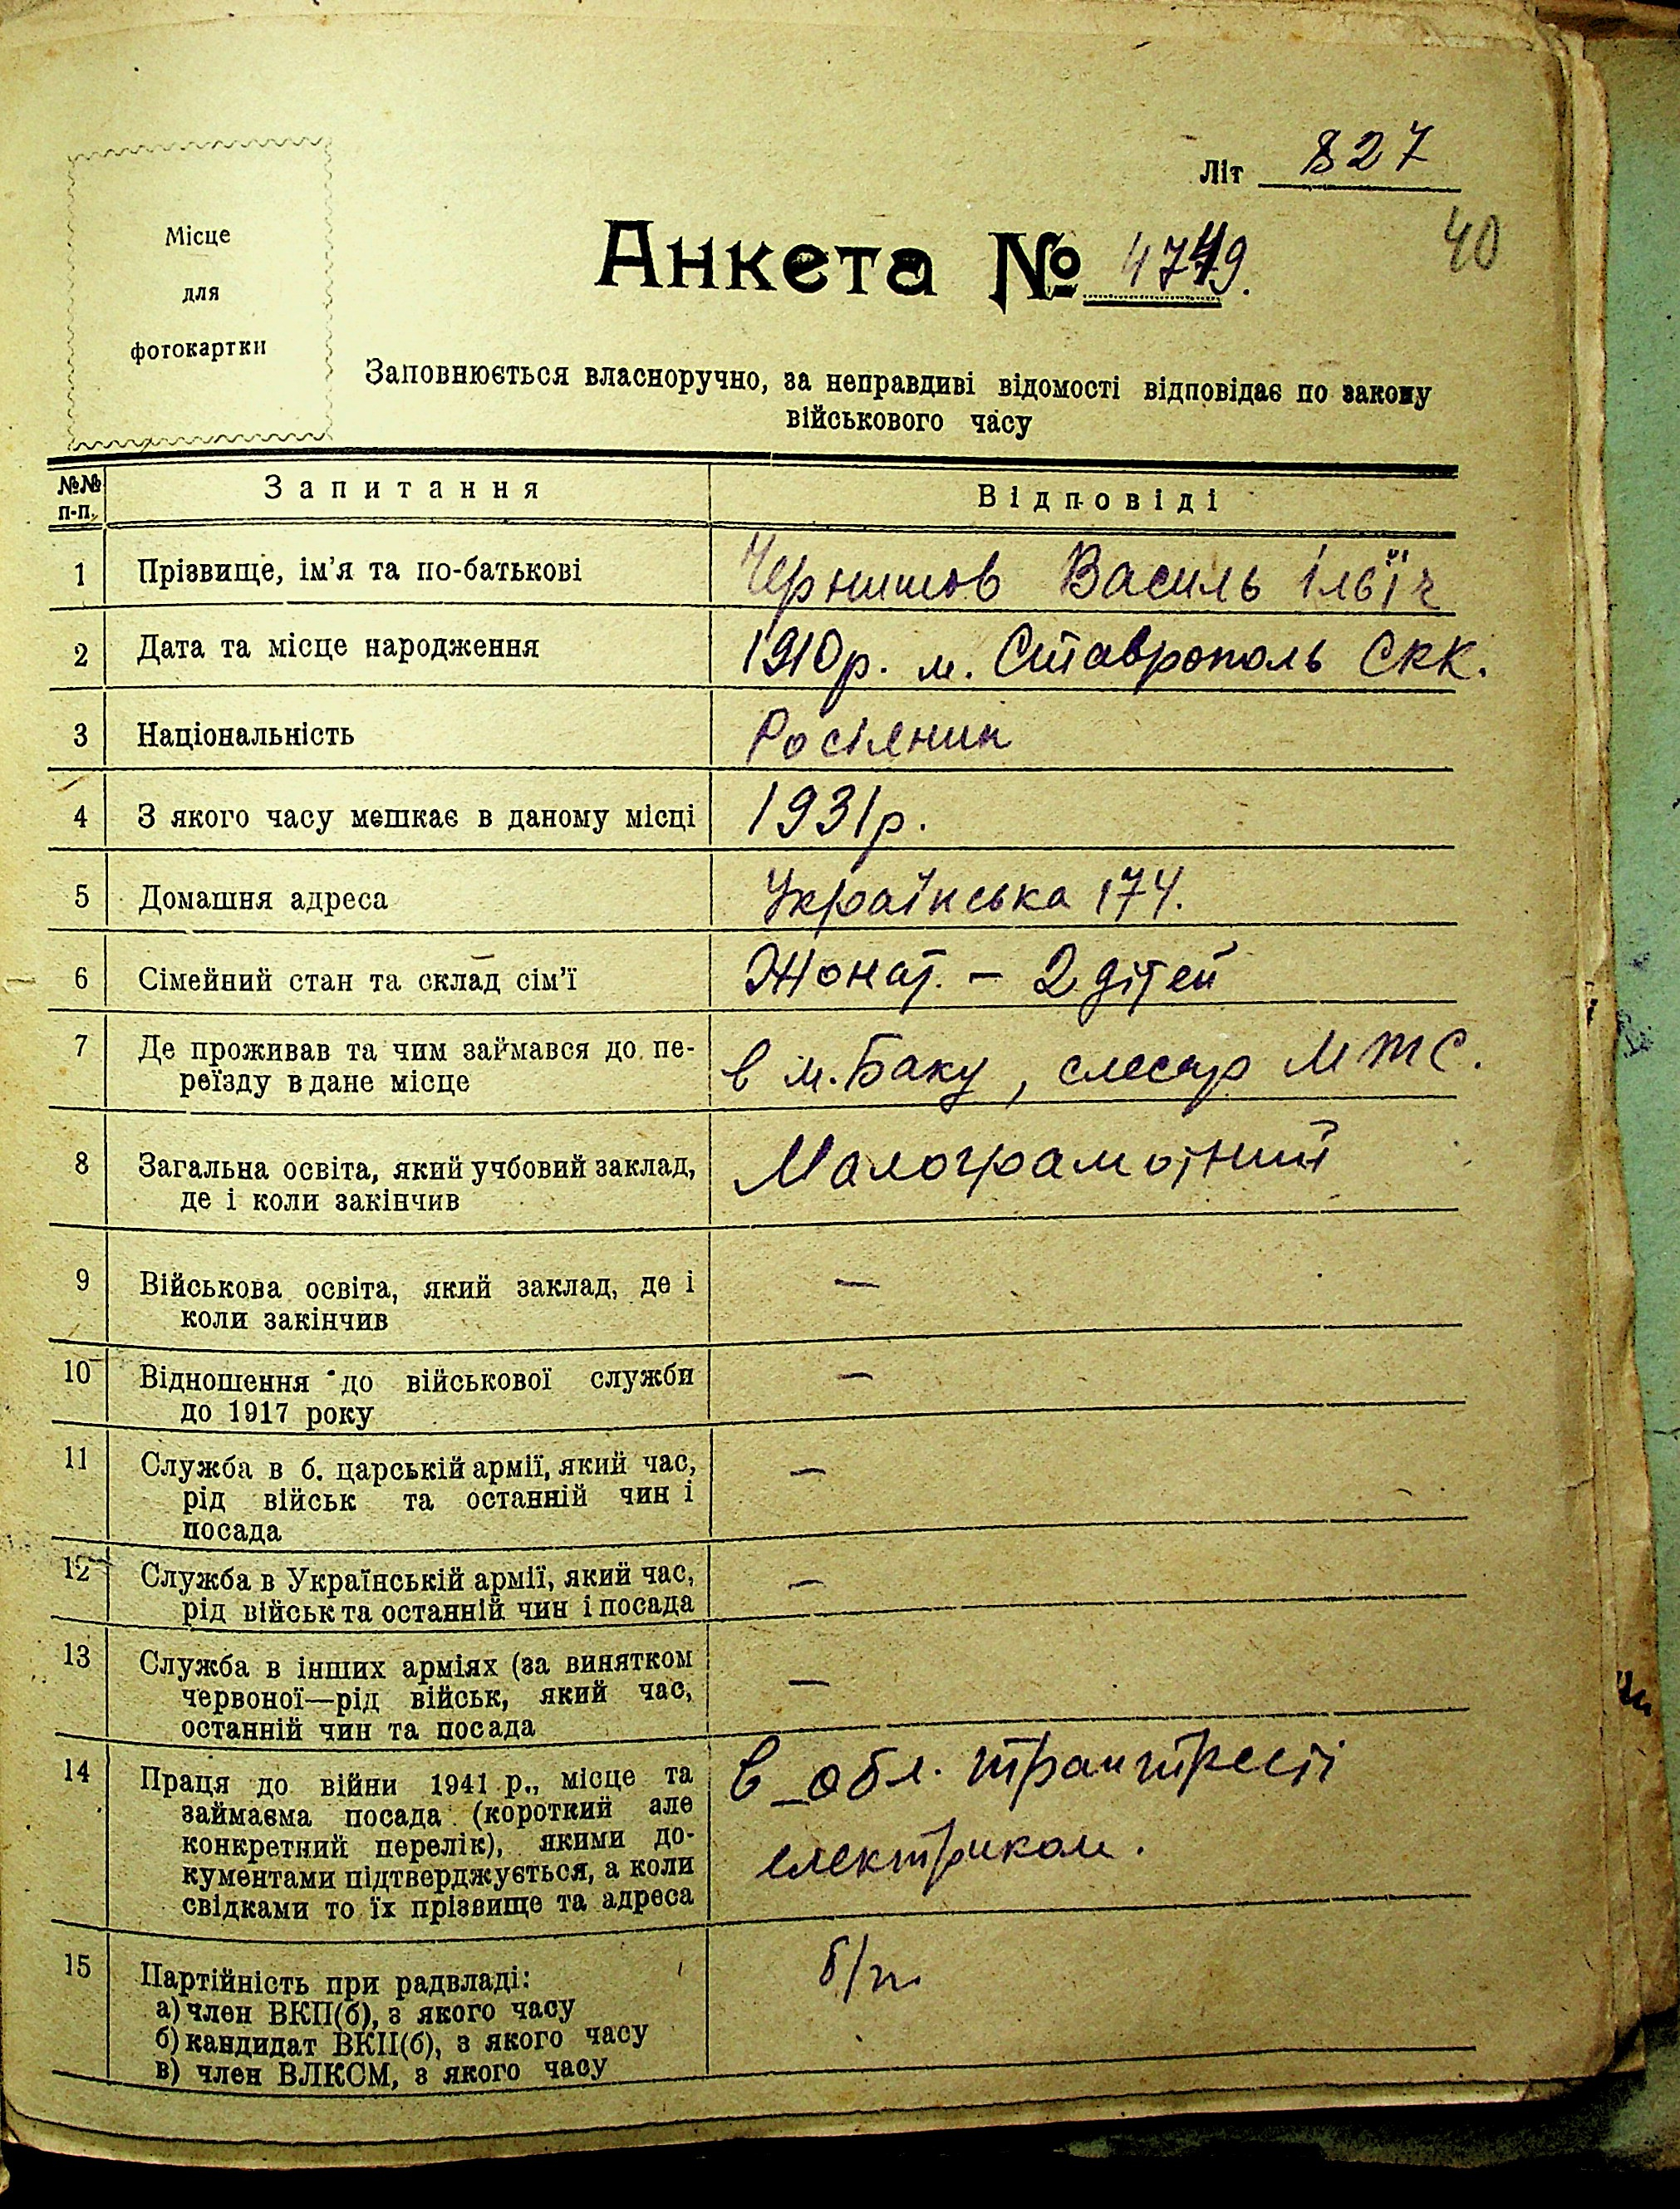 Літ 827
40
Місце
для
фотокартки
Анкета №
Заповнюється власноручно, за неправдиві відомості відповідає по закону
військового часу
№№ п-п. Запитання Відповіді
1 Прізвище, ім'я та по-батькові Чернишов Василь Ільїч
2 Дата та місце народження 1910р. м. Ставрополь СКК.
3 Національність Росіянин
4 З якого часу мешкає в даному місці 1931р.
5 Домашня адреса Українська 174.
6 Сімейний стан та склад сім'ї Жонат. – 2 дітей
7 Де проживав та чим займався до пе-
реїзду в дане місце в м. Баку, слесар МТС.
8 Загальна освіта, який учбовий заклад,
де і коли закінчив Малограмотний
9 Військова освіта, який заклад, де і
коли закінчив —
10 Відношення до військової служби
до 1917 року —
11 Служба в б. царській армії, який час,
рід військ та останній чин і
посада —
12 Служба в Українській армії, який час,
рід військ та останній чин і посада —
13 Служба в інших арміях (за винятком
червоної—рід військ, який час,
останній чин та посада —
14 Праця до війни 1941 р., місце та
займаєма посада (короткий але
конкретний перелік), якими до-
кументами підтверджується, а коли
свідками то їх прізвище та адреса
в обл.
електриком.
15 Партійність при радвладі: б/п.
а) член ВКП(б), з якого часу
б) кандидат ВКП(б), з якого часу
в) член ВЛКСМ, з якого часу